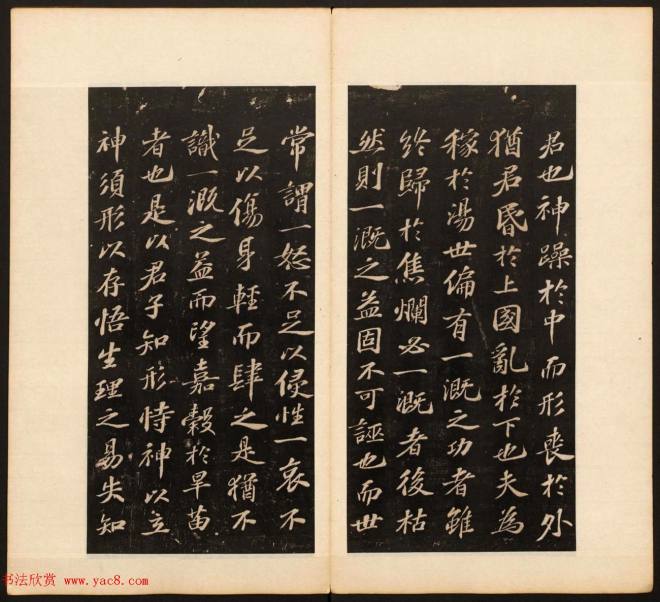 君也神躁於中而形喪於外
猶君昏於上國亂於下也夫為
稼於湯世偏有一溉之功者雖
終歸於焦爛必一溉者後枯
然則一溉之益固不可誣也而世
常謂一怒不足以侵性一哀不
足以傷身輕而肆之是猶不
識一溉之益而望嘉穀於旱苗
者也是以君子知形恃神以立
神須形以存悟生理之易失知
书法欣赏 www.yac8.com